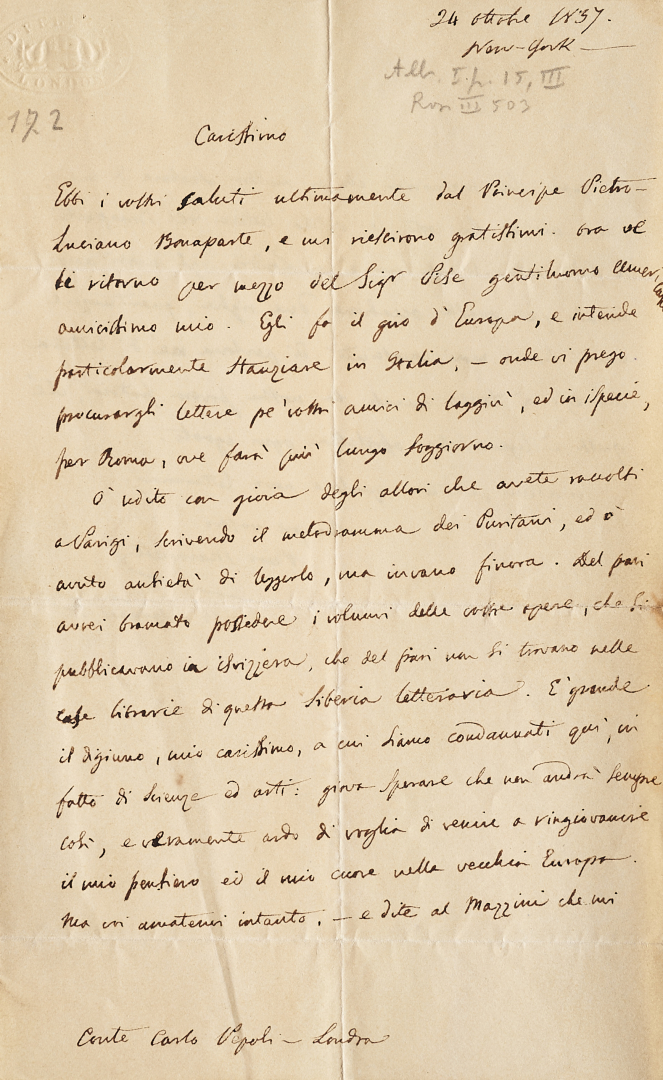 LONDON
24 ottobre 1837.
New-York —
Alb. I. p. 15, III
Ron III 503
172
Carissimo
Ebbi i vostri saluti ultimamente dal Principe Pietro-
Luciano Bonaparte, e mi riescirono gratissimi. Ora ve
li ritorno per mezzo del Sigr Pise gentiluomo
amicissimo mio. Egli fa il giro d'Europa, e intende
particolarmente stanziare in Italia, — onde vi prego
procurargli lettere pe' vostri amici di laggiù, ed in ispecie,
per Roma, ove farà più lungo soggiorno.
Ò udito con gioia degli allori che avete raccolti
a Parigi, scrivendo il melodramma dei Puritani, ed ò
avuto ansietà di leggerlo, ma invano finora. Del pari
avrei bramato possedere i volumi delle vostre opere, che si
pubblicavano in isvizzera, che del pari non si trovano nelle
case librarie di questa Siberia letteraria. E' grande
il digiuno, mio carissimo, a cui siamo condannati quì, in
fatto di scienze ed arti: giova sperare che non andrà sempre
così, e veramente ardo di voglia di venire a ringiovanire
il mio pensiero ed il mio cuore nella vecchia Europa.
Ma voi amatemi intanto, — e dite al Mazzini che mi
Conte Carlo Pepoli — Londra